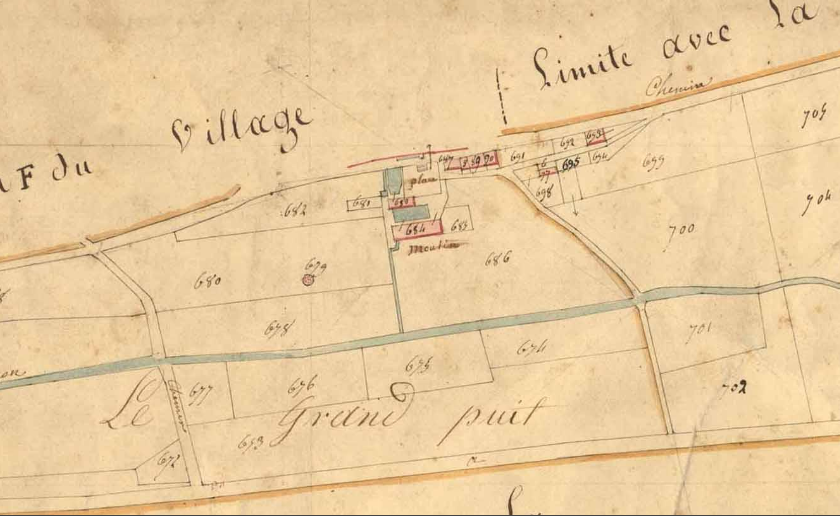 Limite avec La
Chemin
F du Village
705
704
647
691
692
693
694
695
699
698
place
681
682
684
683
Moulin
686
700
679
680
678
701
702
675
674
677
676
Chemin
Le Grand puit
673
672